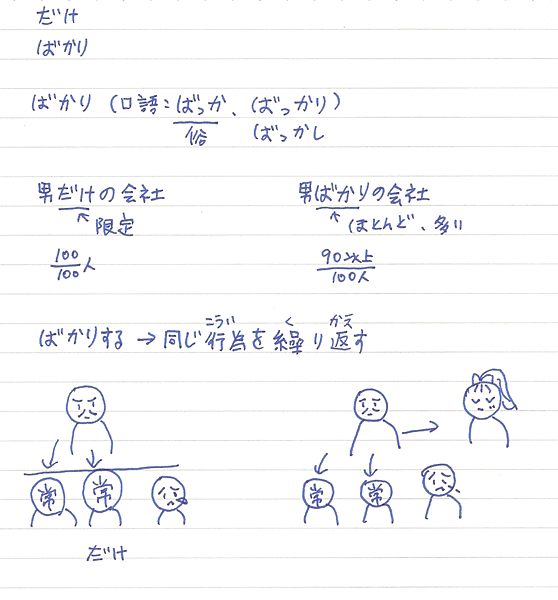 だけ
ばかり
ばかり (口語:ばっか、(ばっかり)
俗 (ばっかし
男だけの会社 男ばかりの会社
限定 ほとんど、多い
100/100人 90以上/100人
ばかりする→同じ行為を繰り返す
こうい く かえ
常 常
常 常
だけ